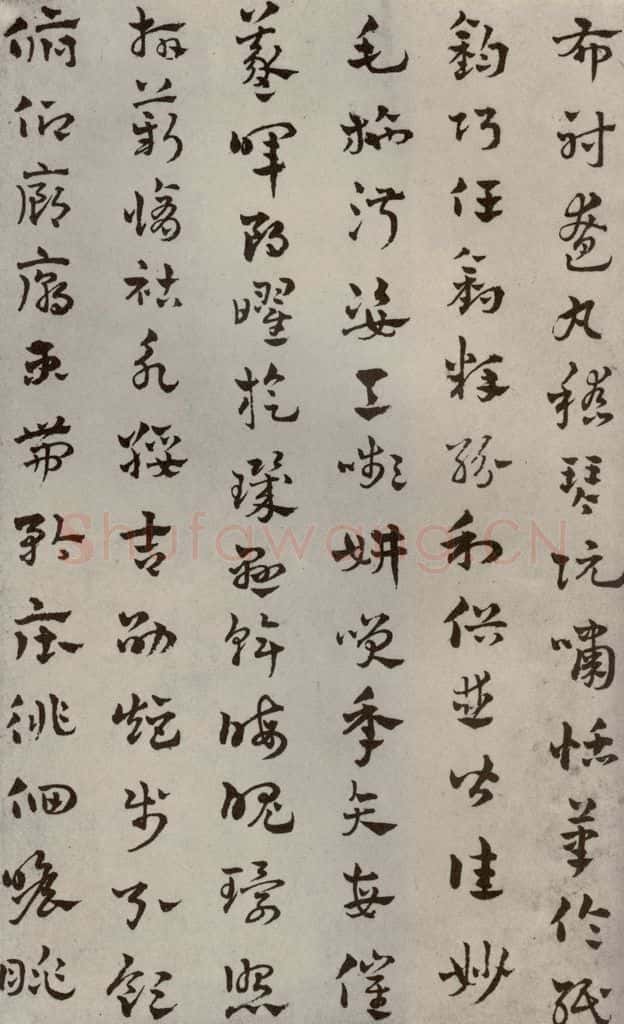 布射遼丸嵇琴阮嘯恬筆倫紙
鈞巧任釣釋紛利俗並皆佳妙
毛施淑姿工嚬妍笑年矢每催
羲暉朗曜旋璣懸斡晦魄環照
指薪脩祜永綏吉劭矩步引領
俯仰廊廟束帶矜莊徘徊瞻眺
Shufawang.CN